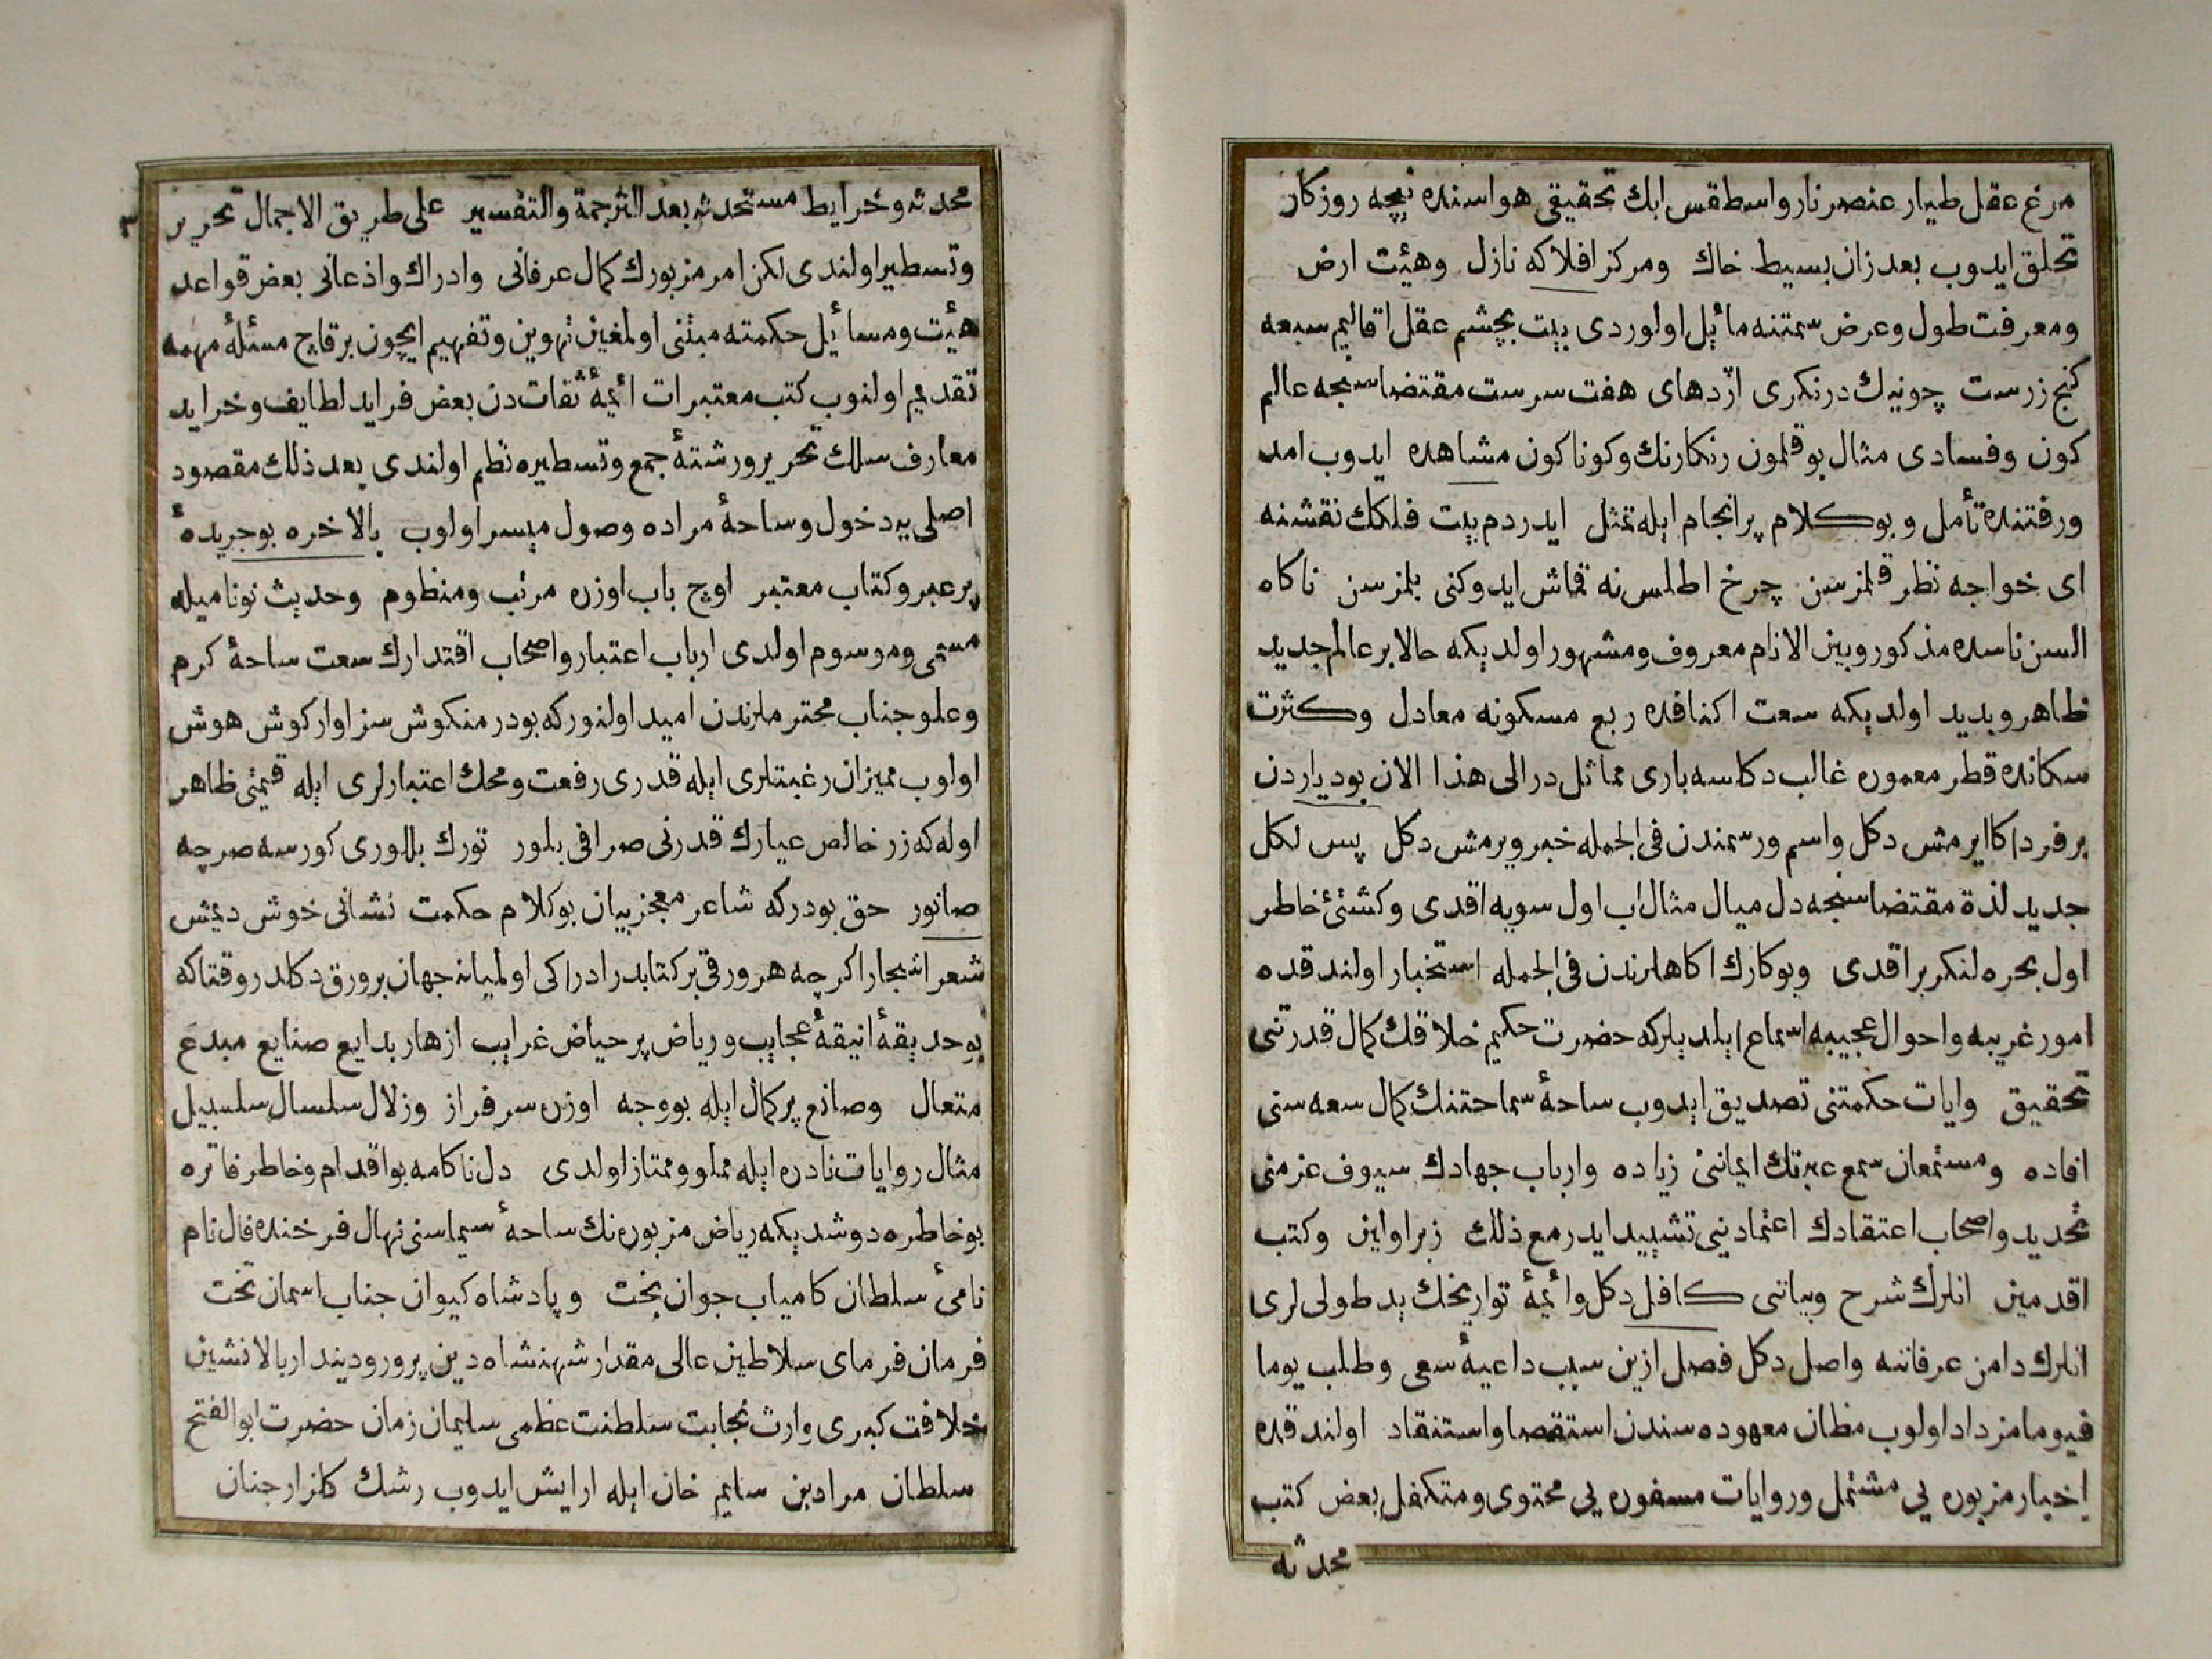 مرغ عقل طيار عنصر نار واسطقس ابك تحقيقى هواسنده نيچه روزكار
تحلق ايدوب بعد زان بسيط خاك ومركز افلاكه نازل وهيئت ارض
ومعرفت طول وعرض سمتنه مائل اولوردى بيت بچشم عقل اقاليم سبعه
كنج زرست چونيك درنكرى اژدهاى هفت سرست مقتضاسنجه عالم
كون وفسادى مثال بوقلمون رنكارنك وكوناكون مشاهده ايدوب امد
ورفتنده تأمل وبو كلام پرانجام ايله تمثل ايدردم بيت فلكك نقشنه
اى خواجه نظر قلمزسن چرخ اطلس نه قماش ايدوكنى بلمزسن ناكاه
السن ناسده مذكور وبين الانام معروف ومشهور اولديكه حالا بر عالم جديد
ظاهر وبديد اولديكه سعت اكنافده ربع مسكونه معادل وكثرت
سكانده قطر معموره غالب دكلسه بارى مماثل در الى هذا الان بودياردن
بر فرد اكا ايرمش دكل واسم ورسمندن فى الجمله خبر ويرمش دكل پس لكل
جديد لذة مقتضاسنجه دل ميال مثال اب اول سويه اقدى وكشتئ خاطر
اول بحره لنكر براقدى وبوكارك اكاهلرندن فى الجمله استخبار اولندقده
امور غريبه واحوال عجيبه استماع ايلديلركه حضرت حكيم خلاقك كمال قدرتنى
تحقيق وايات حكمتنى تصديق ايدوب ساحۀ سماحتنك كمال سعه سنى
افاده ومستمعان سمع عبرتك ايماننى زياده وارباب جهادك سيوف عزمنى
تحديد واصحاب اعتقادك اعتمادينى تشييد ايدر مع ذلك زبر اولين وكتب
اقدمين انلرك شرح وبياننى كافل دكل وائمۀ تواريخك يد طولى لرى
انلرك دامن عرفاننه واصل دكل فصل ازين سبب داعيۀ سعى وطلب يوما
فيوما مزداد اولوب مظان معهوده سندن استقصا واستنقاد اولندقده
اخبار مزبوره يى مشتمل وروايات مسفوره يى محتوى ومتكفل بعض كتب
محدثه
٣
محدثه وخرايط مستحدثه بعد الترجمة والتفسير على طريق الاجمال تحرير
وتسطير اولندى لكن امر مزبورك كمال عرفانى وادراك واذعانى بعض قواعد
هيئت ومسائل حكمته مبتنى اولمغين تهوين وتفهيم ايچون برقاچ مسئلۀ مهمه
تقديم اولنوب كتب معتبرات ائمۀ ثقات دن بعض فرايد لطايف وخرايد
معارف سلك تحرير ورشتۀ جمع وتسطيره نظم اولندى بعد ذلك مقصود
اصلى يه دخول وساحۀ مراده وصول ميسر اولوب بالاخره بوجريدۀ
پرعبر وكتاب معتبر اوچ باب اوزره مرتب ومنظوم وحديث نوناميله
مسمى وموسوم اولدى ارباب اعتبار واصحاب اقتدارك سعت ساحۀ كرم
وعلو جناب محترملرندن اميد اولنوركه بودر منكوش سزاوار كوش هوش
اولوب ميزان رغبتلرى ايله قدرى رفعت ومحك اعتبارلرى ايله قيمتى ظاهر
اوله كه زر خالص عيارك قدرنى صرافى بلور تورك بللورى كورسه صرچه
صانور حق بودركه شاعر معجز بيان بوكلام حكمت نشانى خوش ديمش
شعر اشجار اكرچه هر ورقى بر كتابدر ادراكى اولميانه جهان بر ورق دكلدر وقتاكه
بوحديقۀ انيقۀ عجايب ورياض پرحياض غرايب ازهار بدايع صنايع مبدع
متعال وصانع پركمال ايله بووجه اوزره سرفراز وزلال سلسال سلسبيل
مثال روايات نادره ايله مملو وممتاز اولدى دل ناكامه بواقدام وخاطر فاتره
بوخاطره دوشديكه رياض مزبوره نك ساحۀ سيماسنى نهال فرخنده فال نام
نامئ سلطان كامياب جوان بخت وپادشاه كيوان جناب اسمان تخت
فرمان فرماى سلاطين عالى مقدار شهنشاه دين پرور وديندار بالانشين
خلافت كبرى وارث نجابت سلطنت عظمى سليمان زمان حضرت ابو الفتح
سلطان مراد بن سليم خان ايله ارايش ايدوب رشك كلزار جنان